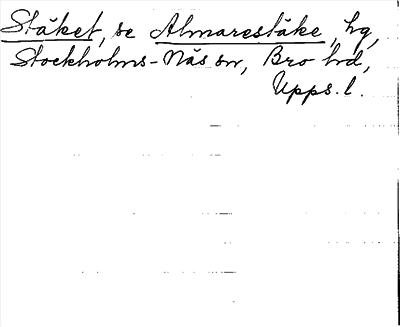 Stäket, se Almarestäke, hg,
Stockholms-Näs sn, Bro hd,
Upps. l.